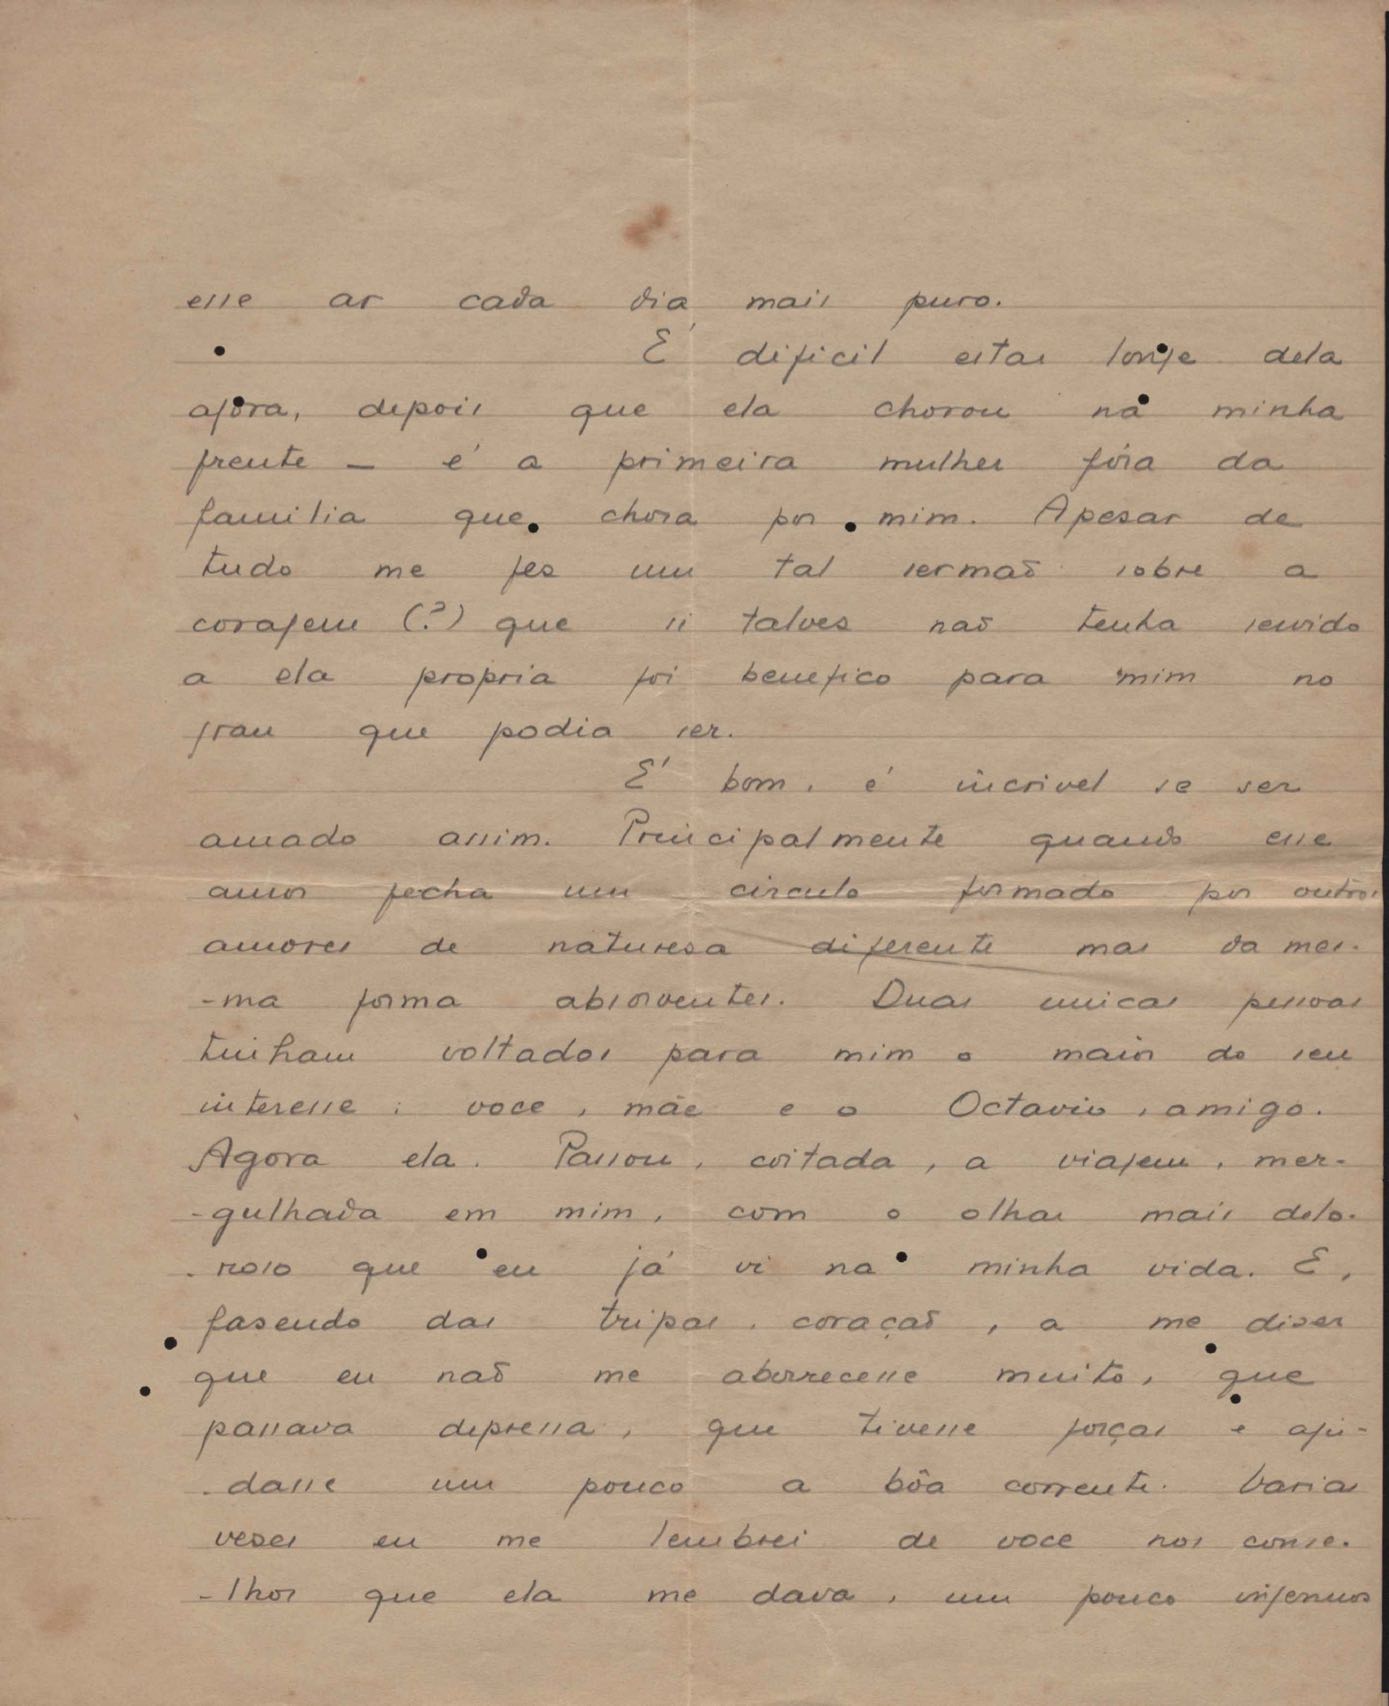 esse ar cada dia mais puro.
É dificil estar longe dela
agora, depois que ela chorou na minha
frente — é a primeira mulher fóra da
familia que chora por mim. Apesar de
tudo me fez um tal sermaõ sobre a
coragem (?) que si talves naõ tenha servido
a ela propria foi benefico para mim no
grau que podia ser.
É bom, é incrivel se ser
amado assim. Principalmente quando esse
amor fecha um circulo formado por outros
amores de naturesa diferente mas da mes-
-ma forma absorventes. Duas unicas pessoas
tinham voltados para mim o maior do seu
interesse: voce, mãe e o Octavio, amigo.
Agora ela. Passou, coitada, a viagem, mer-
-gulhada em mim, com o olhar mais dolo-
-roso que eu já vi na minha vida. E,
fasendo das tripas, coraçaõ, a me diser
que eu naõ me aborrecesse muito, que
passava depressa, que tivesse forças e aju-
-dasse um pouco a bôa corrente. Varias
veses eu me lembrei de voce nos conse-
-lhos que ela me dava, um pouco ingenuos